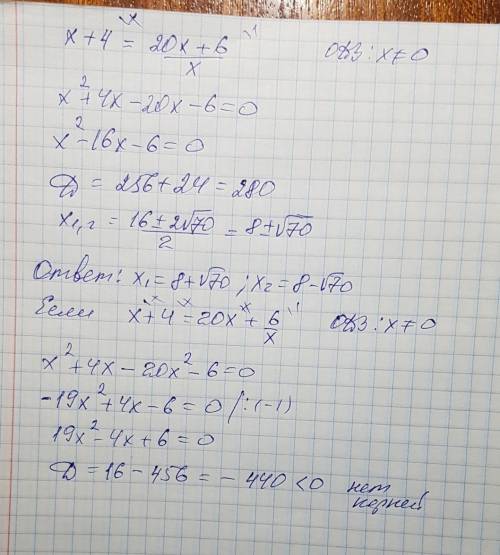 x + 4 = (20x + 6)/x \x \1 ОДЗ: x ≠ 0
x² + 4x - 20x - 6 = 0
x² - 16x - 6 = 0
D = 256 + 24 = 280
x₁,₂ = (16 ± 2√70)/2 = 8 ± √70
Ответ: x₁ = 8 + √70 ; x₂ = 8 - √70
Если x\x + 4\x = 20x\x + 6/x\1 ОДЗ: x ≠ 0
x² + 4x - 20x² - 6 = 0
-19x² + 4x - 6 = 0 /:(-1)
19x² - 4x + 6 = 0
D = 16 - 456 = -440 < 0 нет
корней